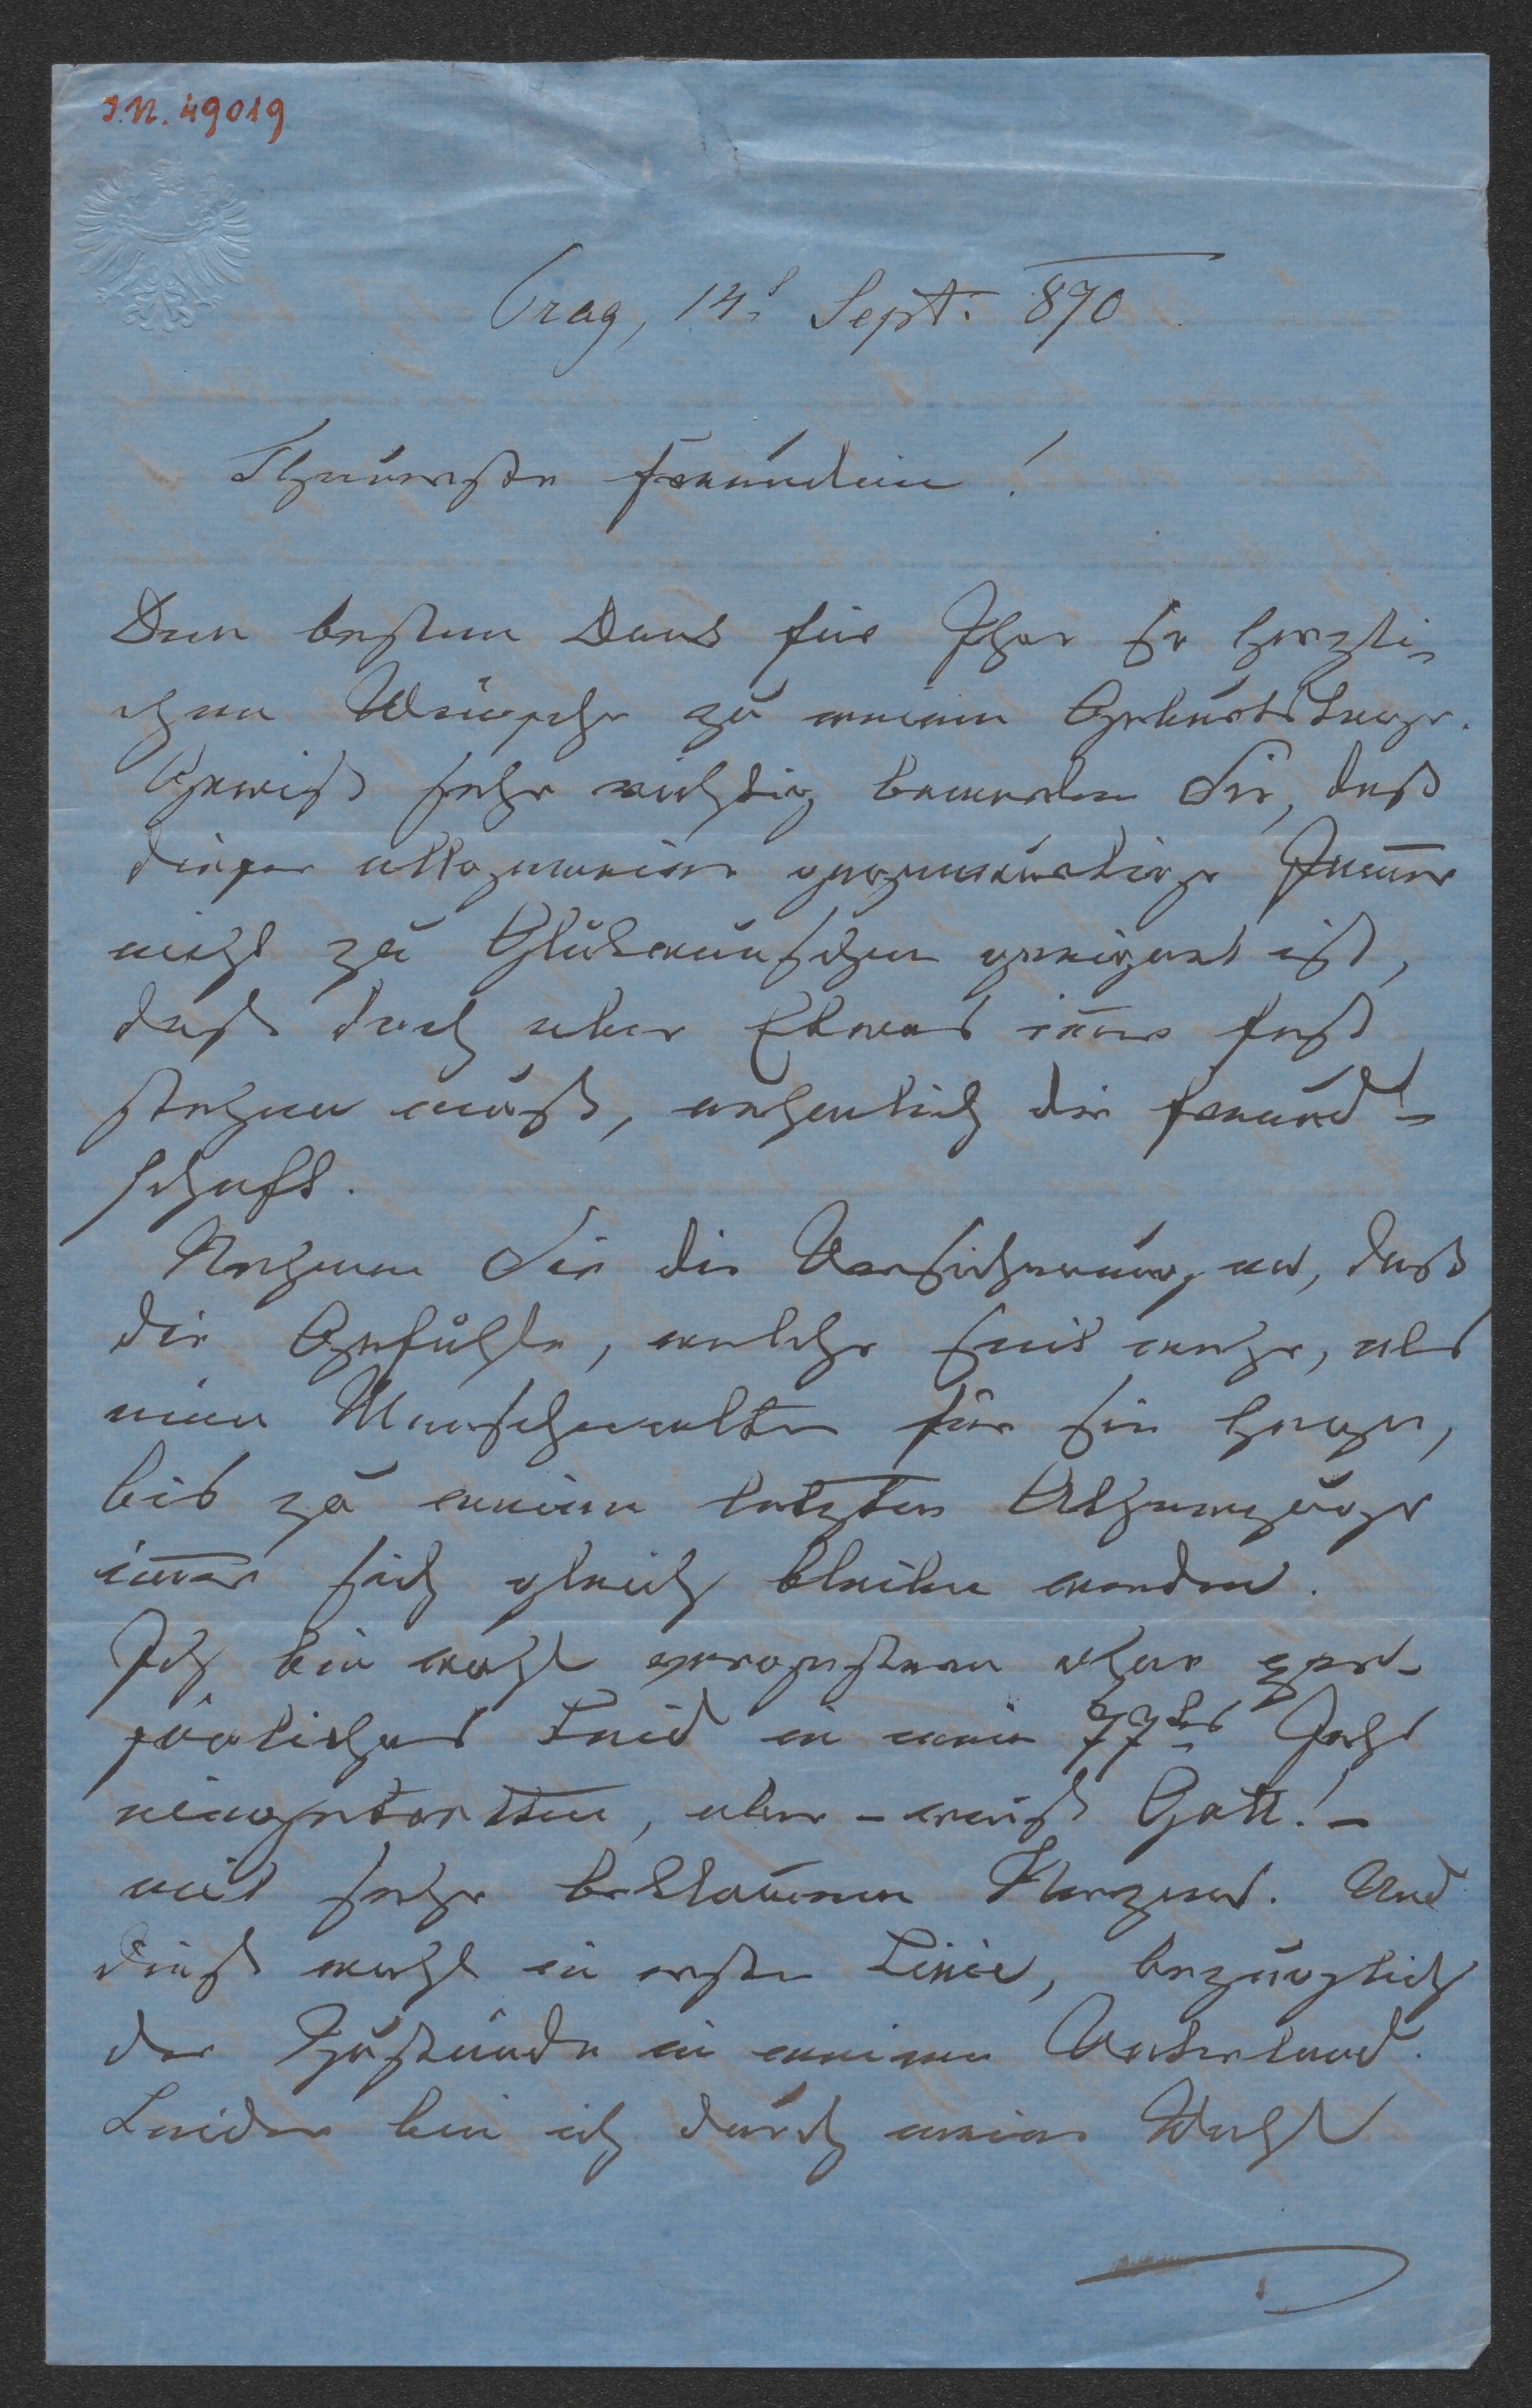 I.N. 49019
Prag, 14t Sept: 870
Theuerste Freundin!
Den besten Dank für Ihre so herzli-
chen Wünsche zu meinem Geburtstage.
Gewiß sehr richtig bemerken Sie, daß
dieser allgemeine gegenwärtige Jammer
nicht zu Glückwünschen geeignet ist,
daß doch aber Etwas im̄er fest
stehen muß, nehmlich die Freund-
schaft.
Nehmen Sie die Versicherung an, daß
die Gefühle, welche seit mehr, als
ein Menschenalter für sie hege,
bis zu meinem letzten Athemzuge
im̄er sich gleich bleiben werden.
Ich bin wohl vorgestern ohne per-
sönliches Leid in mein 77tes Jahr
eingetretten, aber – weiß Gott! –
mit sehr beklom̄enen Herzens. Und
dieß wohl in erster Linie, bezüglich
der Zustände in meinem Vaterland.
Leider bin ich durch meine Wahl